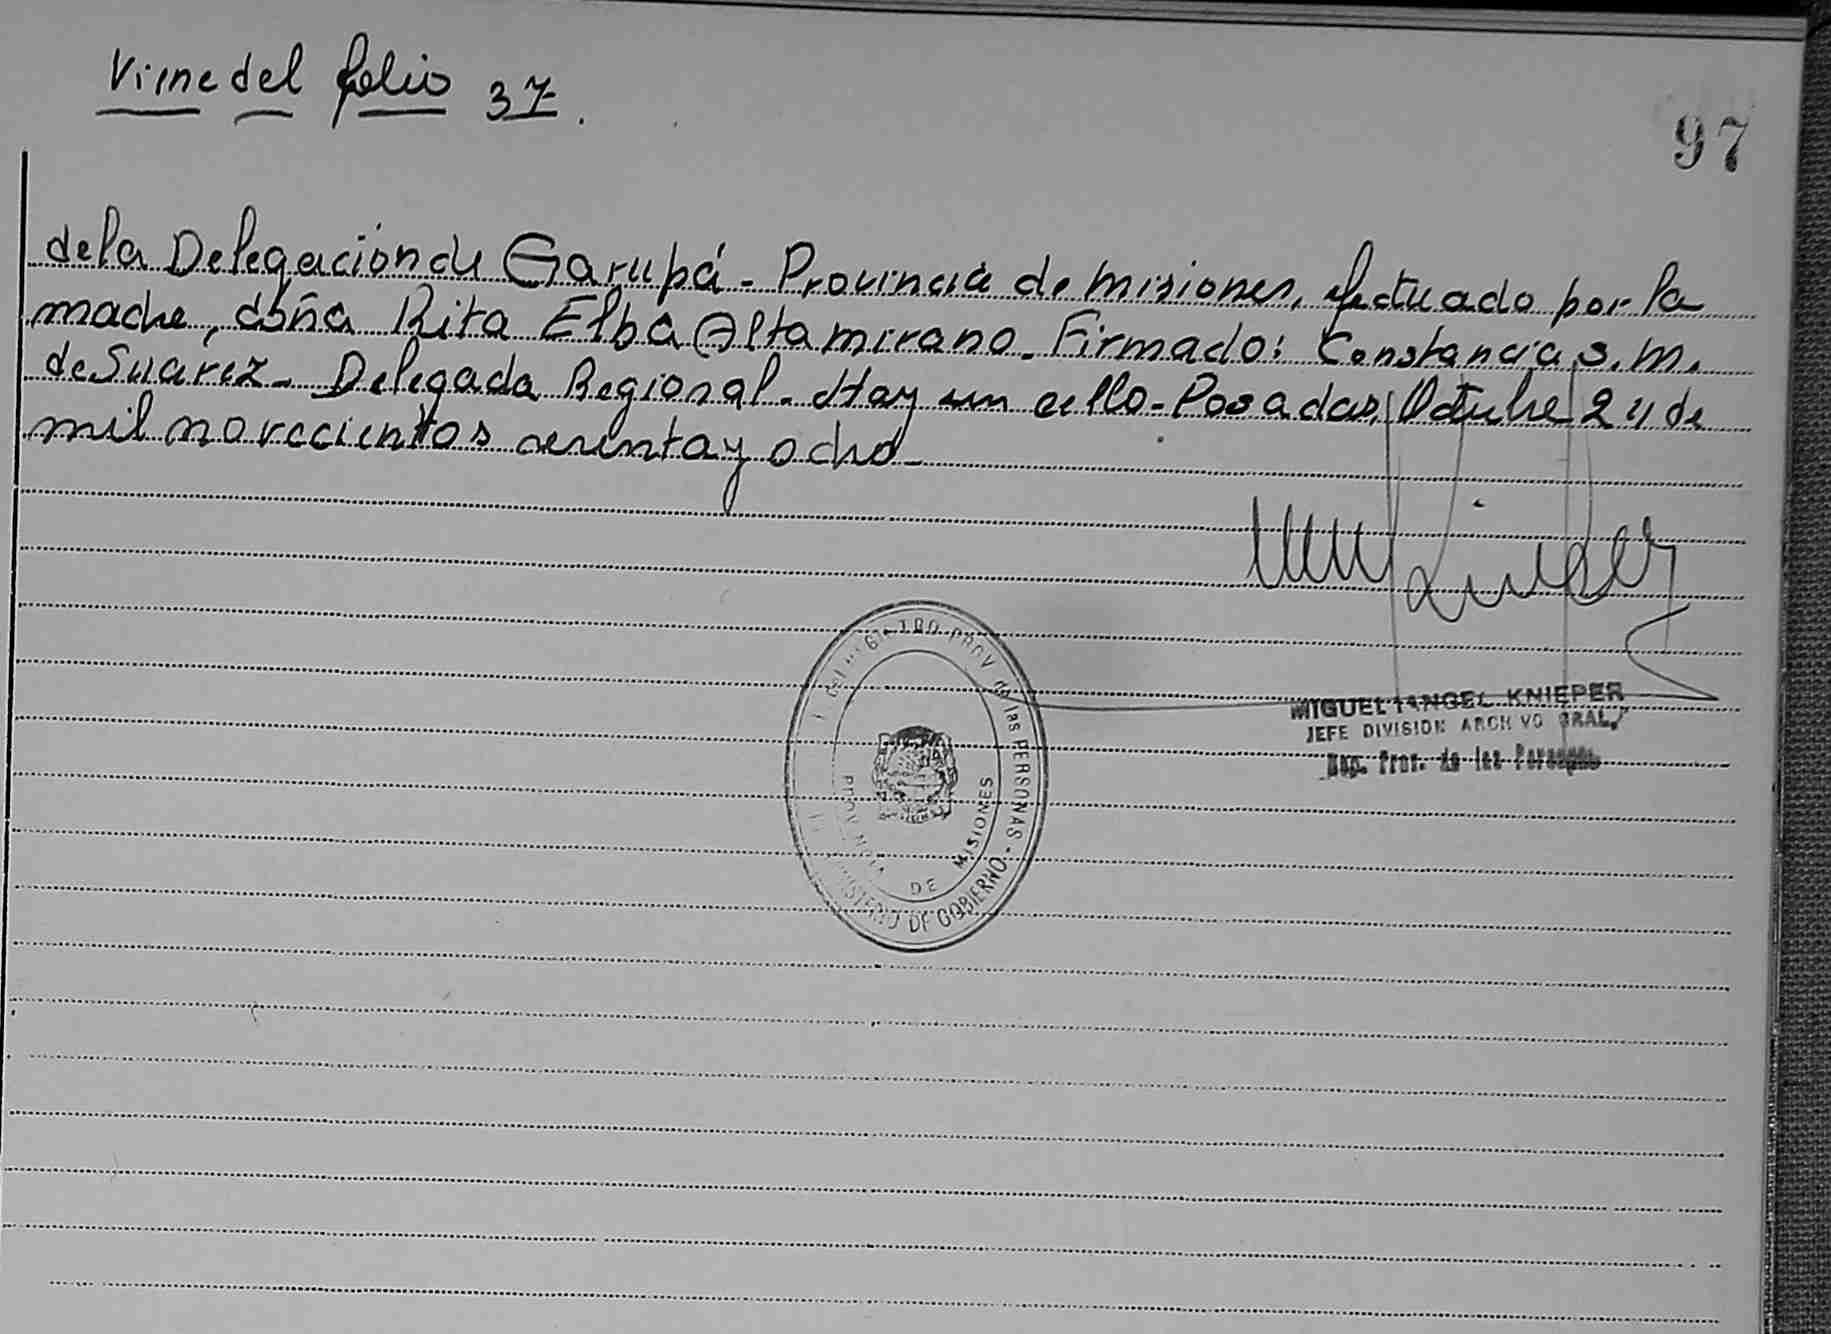 Viene del folio 37.
97
de la Delegación de Garupá - Provincia de Misiones, efectuado por la
madre, doña Rita Elba Altamirano. Firmado: Constancia S. M.
de Suarez - Delegada Regional. Hay un sello - Posadas, Octubre 24 de
mil novecientos sesenta y ocho -
REGISTRO PROV de las PERSONAS - MINISTERIO DE GOBIERNO
PROVINCIA DE MISIONES
MIGUEL ANGEL KNIEPER
JEFE DIVISION ARCHIVO GRAL.
Prov. de las Personas